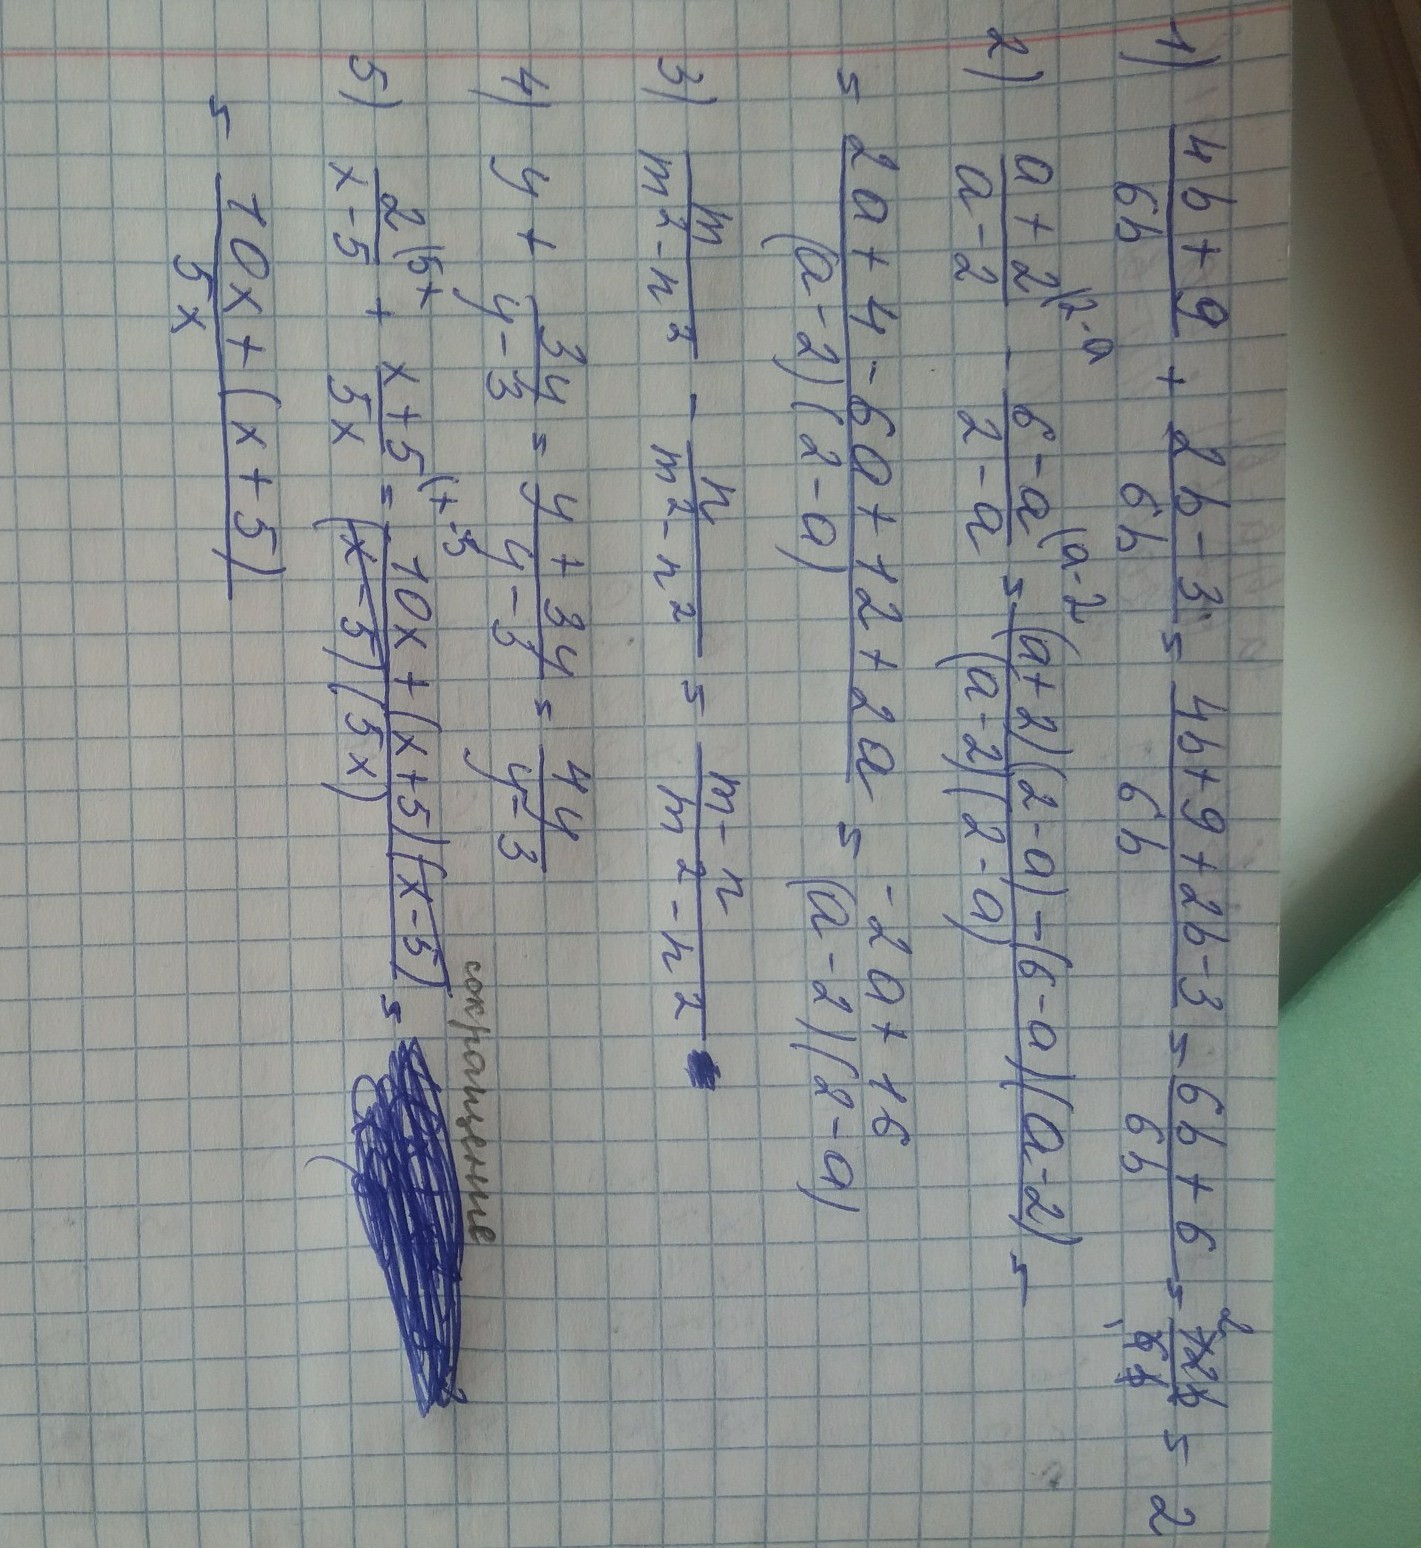 1) (4b+9)/6b + (2b-3)/6b = (4b+9+2b-3)/6b = (6b+6)/6b = 12b/6b = 2
2) (a+2)/(a-2) (2-a - (6-a)/(2-a) (a-2 = ((a+2)(2-a)-(6-a)(a-2))/((a-2)(2-a)) =
= (2a+4-6a+12+2a)/((a-2)(2-a)) = (-2a+16)/((a-2)(2-a))
3) m/(m²-n²) - n/(m²-n²) = (m-n)/(m²-n²)
4) y + 3y/(y-3) = (y+3y)/(y-3) = 4y/(y-3)
сокращение
5) 2/(x-5) (5x + (x+5)/5x (x-5 = (10x+(x+5)(x-5))/((x-5)(5x)) =
= (10x+(x+5))/5x